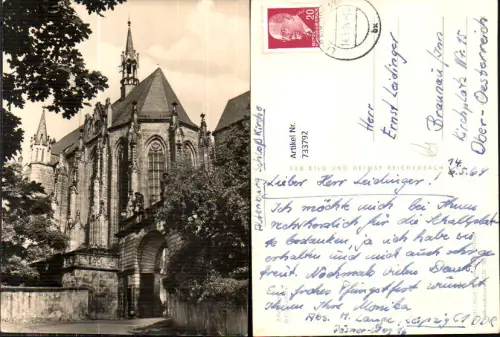 20
Artikel Nr.
733792
VEB BILD UND HEIMAT REICHENBACH
Herr
Ernst Leidinger
Braunau/Inn
Kirchplatz Nr. 15
Ober-Oesterreich
Altenburg Schloßkirche
14.
5.64
Lieber Herr Leidinger!
Ich möchte mich bei Ihnen
recht herzlich für die Schallplatte
bedanken, ja ich habe sie
erhalten und mich auch sehr ge-
freut. Nochmals vielen Dank!
Ein frohes Pfingstfest wünscht
Ihnen Ihre Monika
Abs. M. Lange, Leipzig
DDR